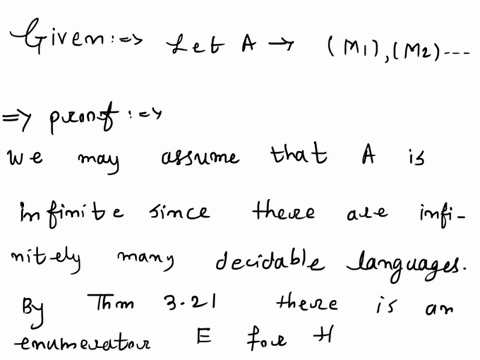 Given :=> Let A → (M1), (M2) ----
=> proof :=>
we may assume that A is
infinite since there are infi-
nitely many decidable languages.
By Thm 3.21 there is an
enumerator E for H